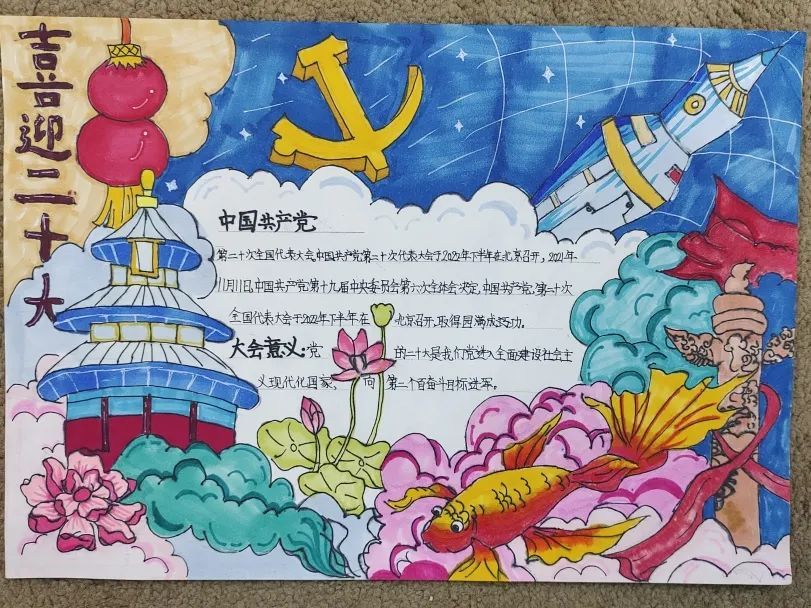 喜迎二十大
中国共产党
第二十次全国代表大会,中国共产党第二十次代表大会于2022年下半年在北京召开,2021年
11月11日,中国共产党第十九届中央委员会第六次全体会决定,中国共产党第二十次
全国代表大会于2022年下半年在北京召开,取得圆满成功。
大会意义:党的二十大是我们党进入全面建设社会主
义现代化国家,向第二个百年奋斗目标进军。